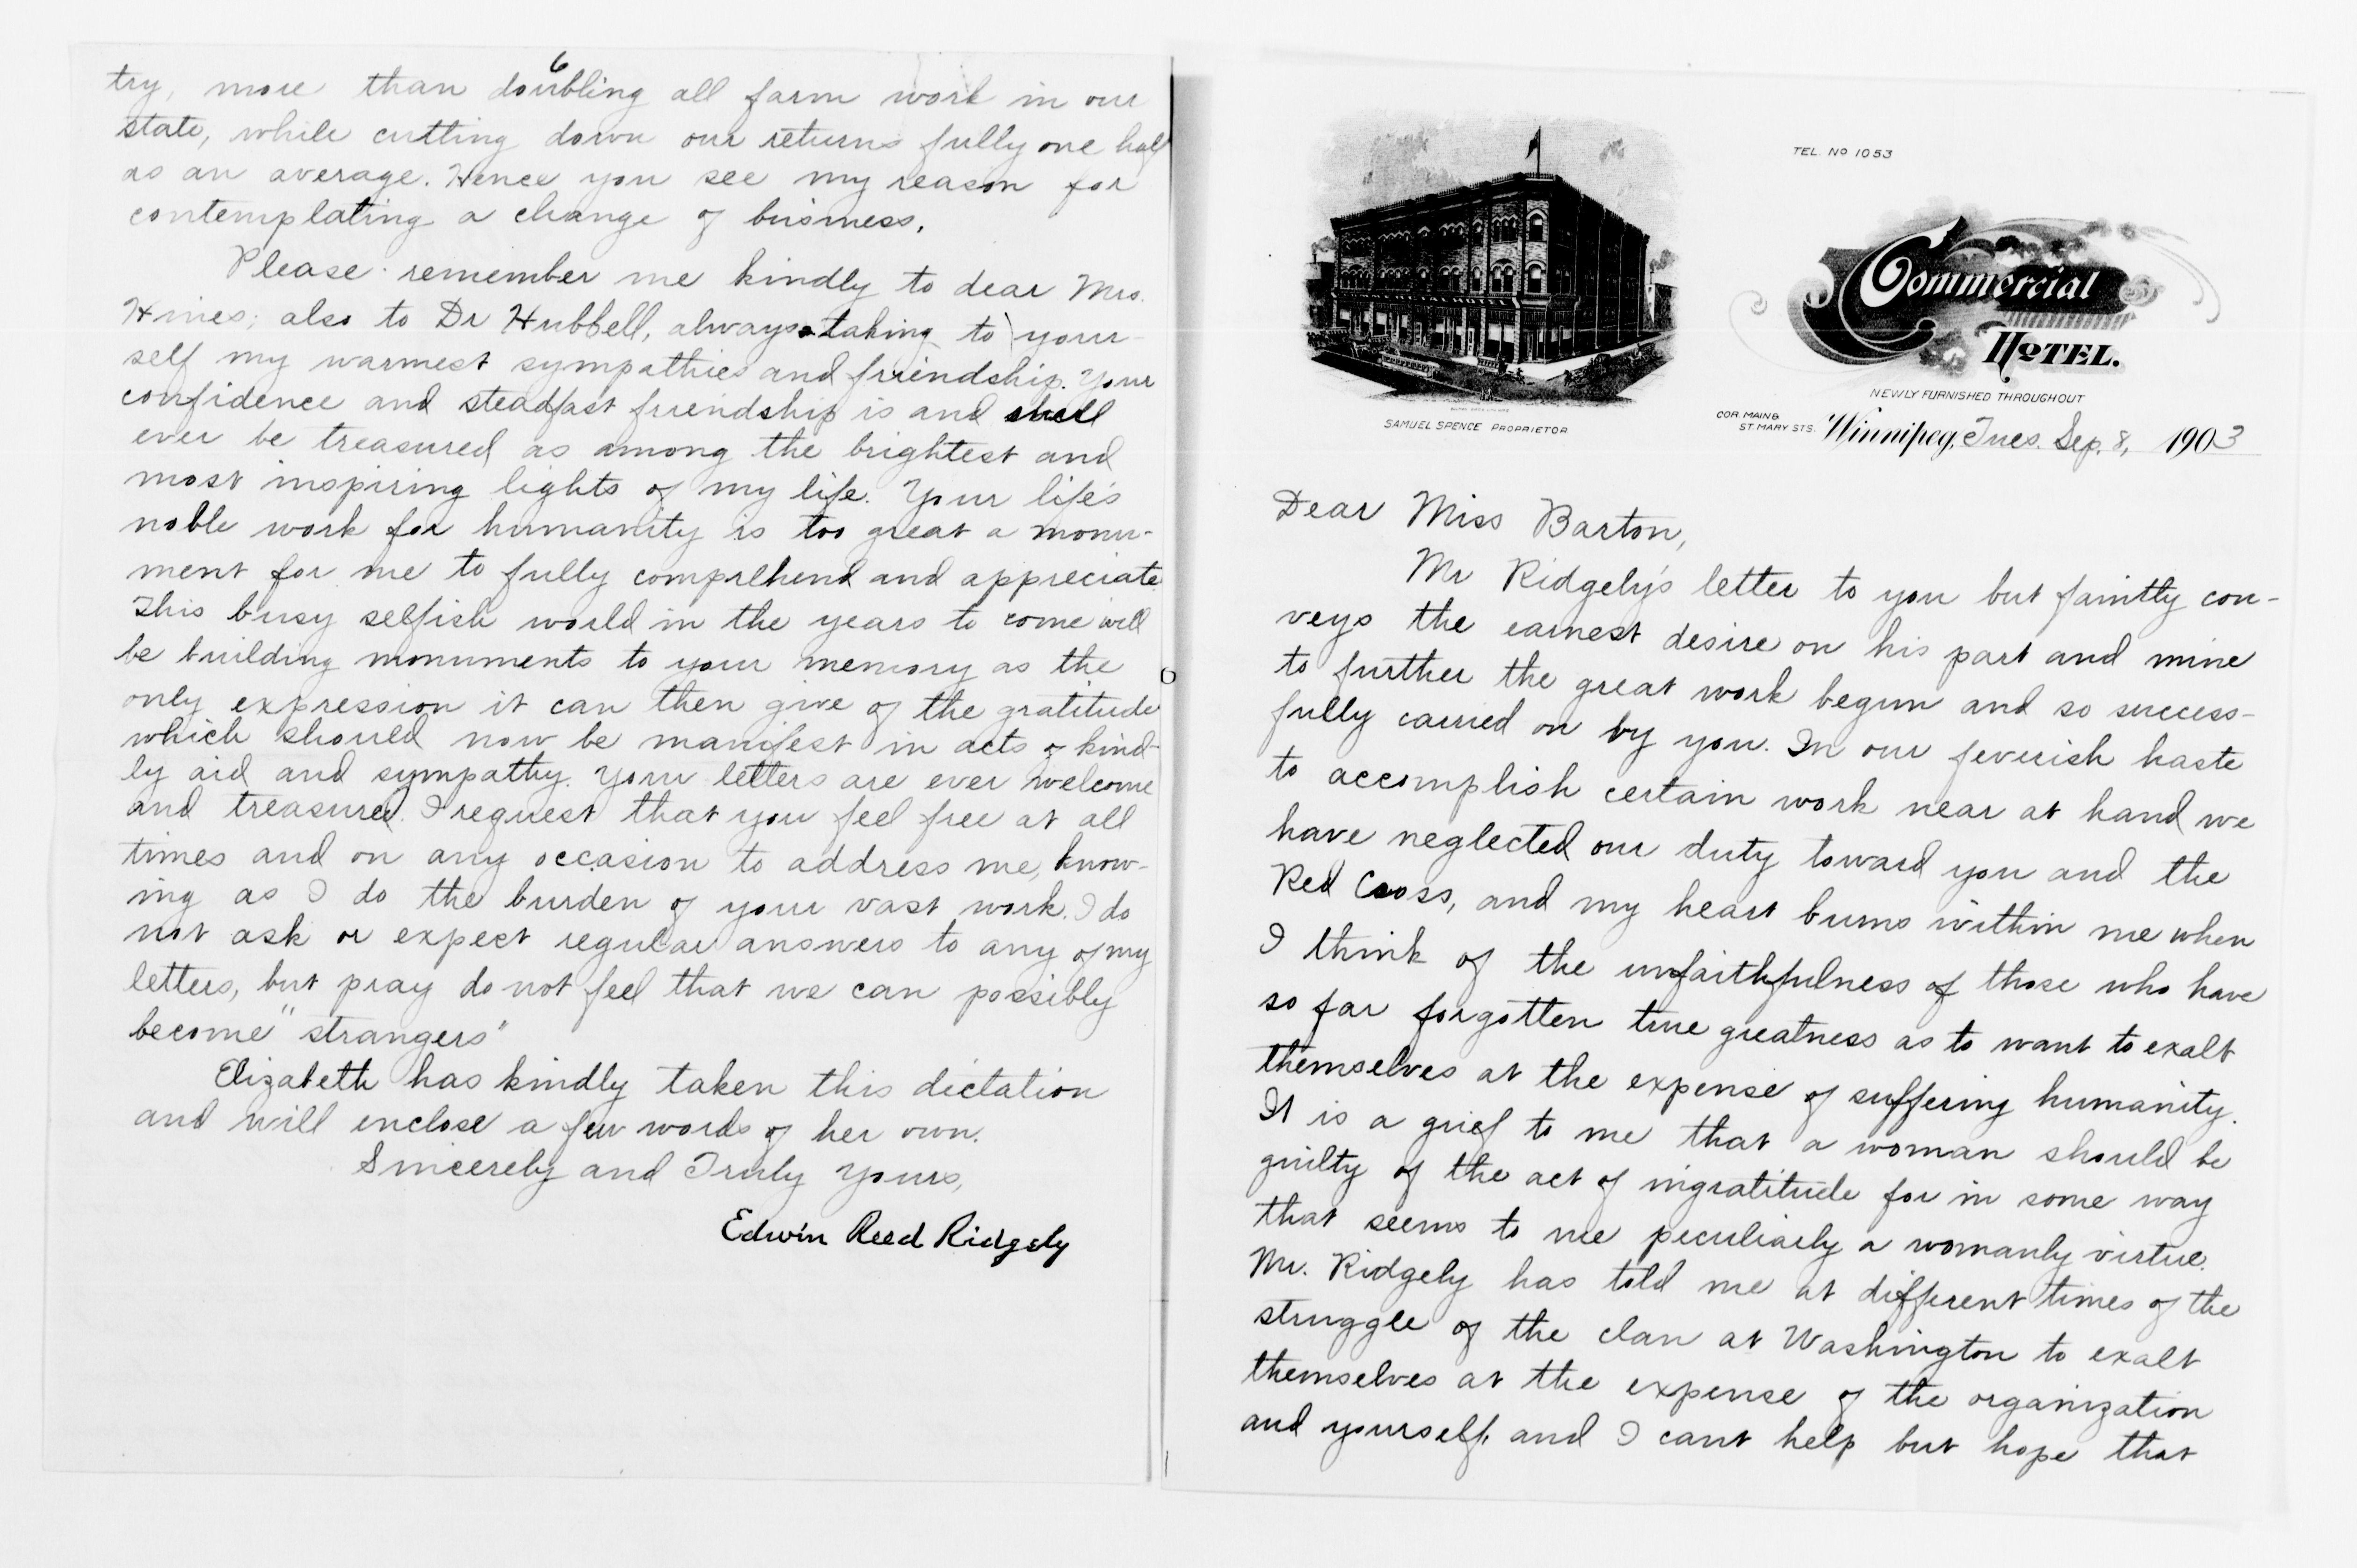 6
try, more than doubling all farm work in our
state, while cutting down our returns fully one half
as an average. Hence you see my reason for
contemplating a change of business.
Please remember me kindly to dear Mrs.
Hines; also to Dr Hubbell, always taking to your-
self my warmest sympathies and friendship. Your
confidence and steadfast friendship is and shall
ever be treasured as among the brightest and
most inspiring lights of my life. Your life's
noble work for humanity is too great a monu-
ment for me to fully comprehend and appreciate.
This busy selfish world in the years to come will
be building monuments to your memory as the
only expression it can then give of the gratitude
which should now be manifest in acts of kind-
ly aid and sympathy. Your letters are ever welcome
and treasured. I request that you feel free at all
times and on any occasion to address me, know-
ing as I do the burden of your vast work. I do
not ask or expect regular answers to any of my
letters, but pray do not feel that we can possibly
become "strangers"
Elizabeth has kindly taken this dictation
and will enclose a few words of her own.
Sincerely and Truly Yours,
Edwin Reed Ridgely
TEL. No 1053
Commercial
HOTEL.
NEWLY FURNISHED THROUGHOUT
SAMUEL SPENCE PROPRIETOR
COR. MAIN &
ST. MARY STS.
Winnipeg, Tues. Sep. 8, 1903
Dear Miss Barton,
Mr Ridgely's letter to you but faintly con-
veys the earnest desire on his part and mine
to further the great work begun and so success-
fully carried on by you. In our feverish haste
to accomplish certain work near at hand we
have neglected our duty toward you and the
Red Cross, and my heart burns within me when
I think of the unfaithfulness of those who have
so far forgotten true greatness as to want to exalt
themselves at the expense of suffering humanity.
It is a grief to me that a woman should be
guilty of the act of ingratitude for in some way
that seems to me peculiarly a womanly virtue.
Mr. Ridgely has told me at different times of the
struggle of the clan at Washington to exalt
themselves at the expense of the organization
and yourself, and I cant help but hope that